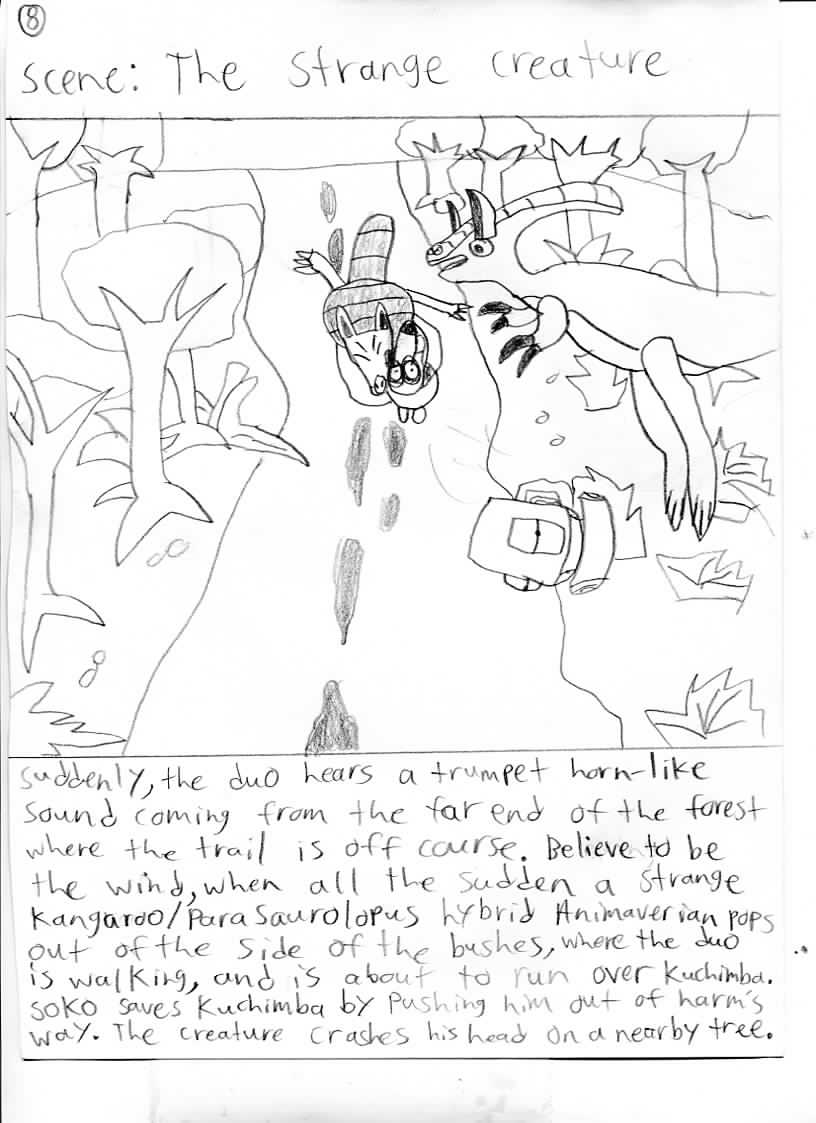 8
Scene: The Strange creature
Suddenly, the duo hears a trumpet horn-like
sound coming from the far end of the forest
where the trail is off course. Believe to be
the wind, when all the sudden a strange
Kangaroo/Parasaurolopus hybrid Animaverian pops
out of the side of the bushes, where the duo
is walking, and is about to run over Kuchimba.
Soko saves Kuchimba by pushing him out of harm's
way. The creature crashes his head on a nearby tree.